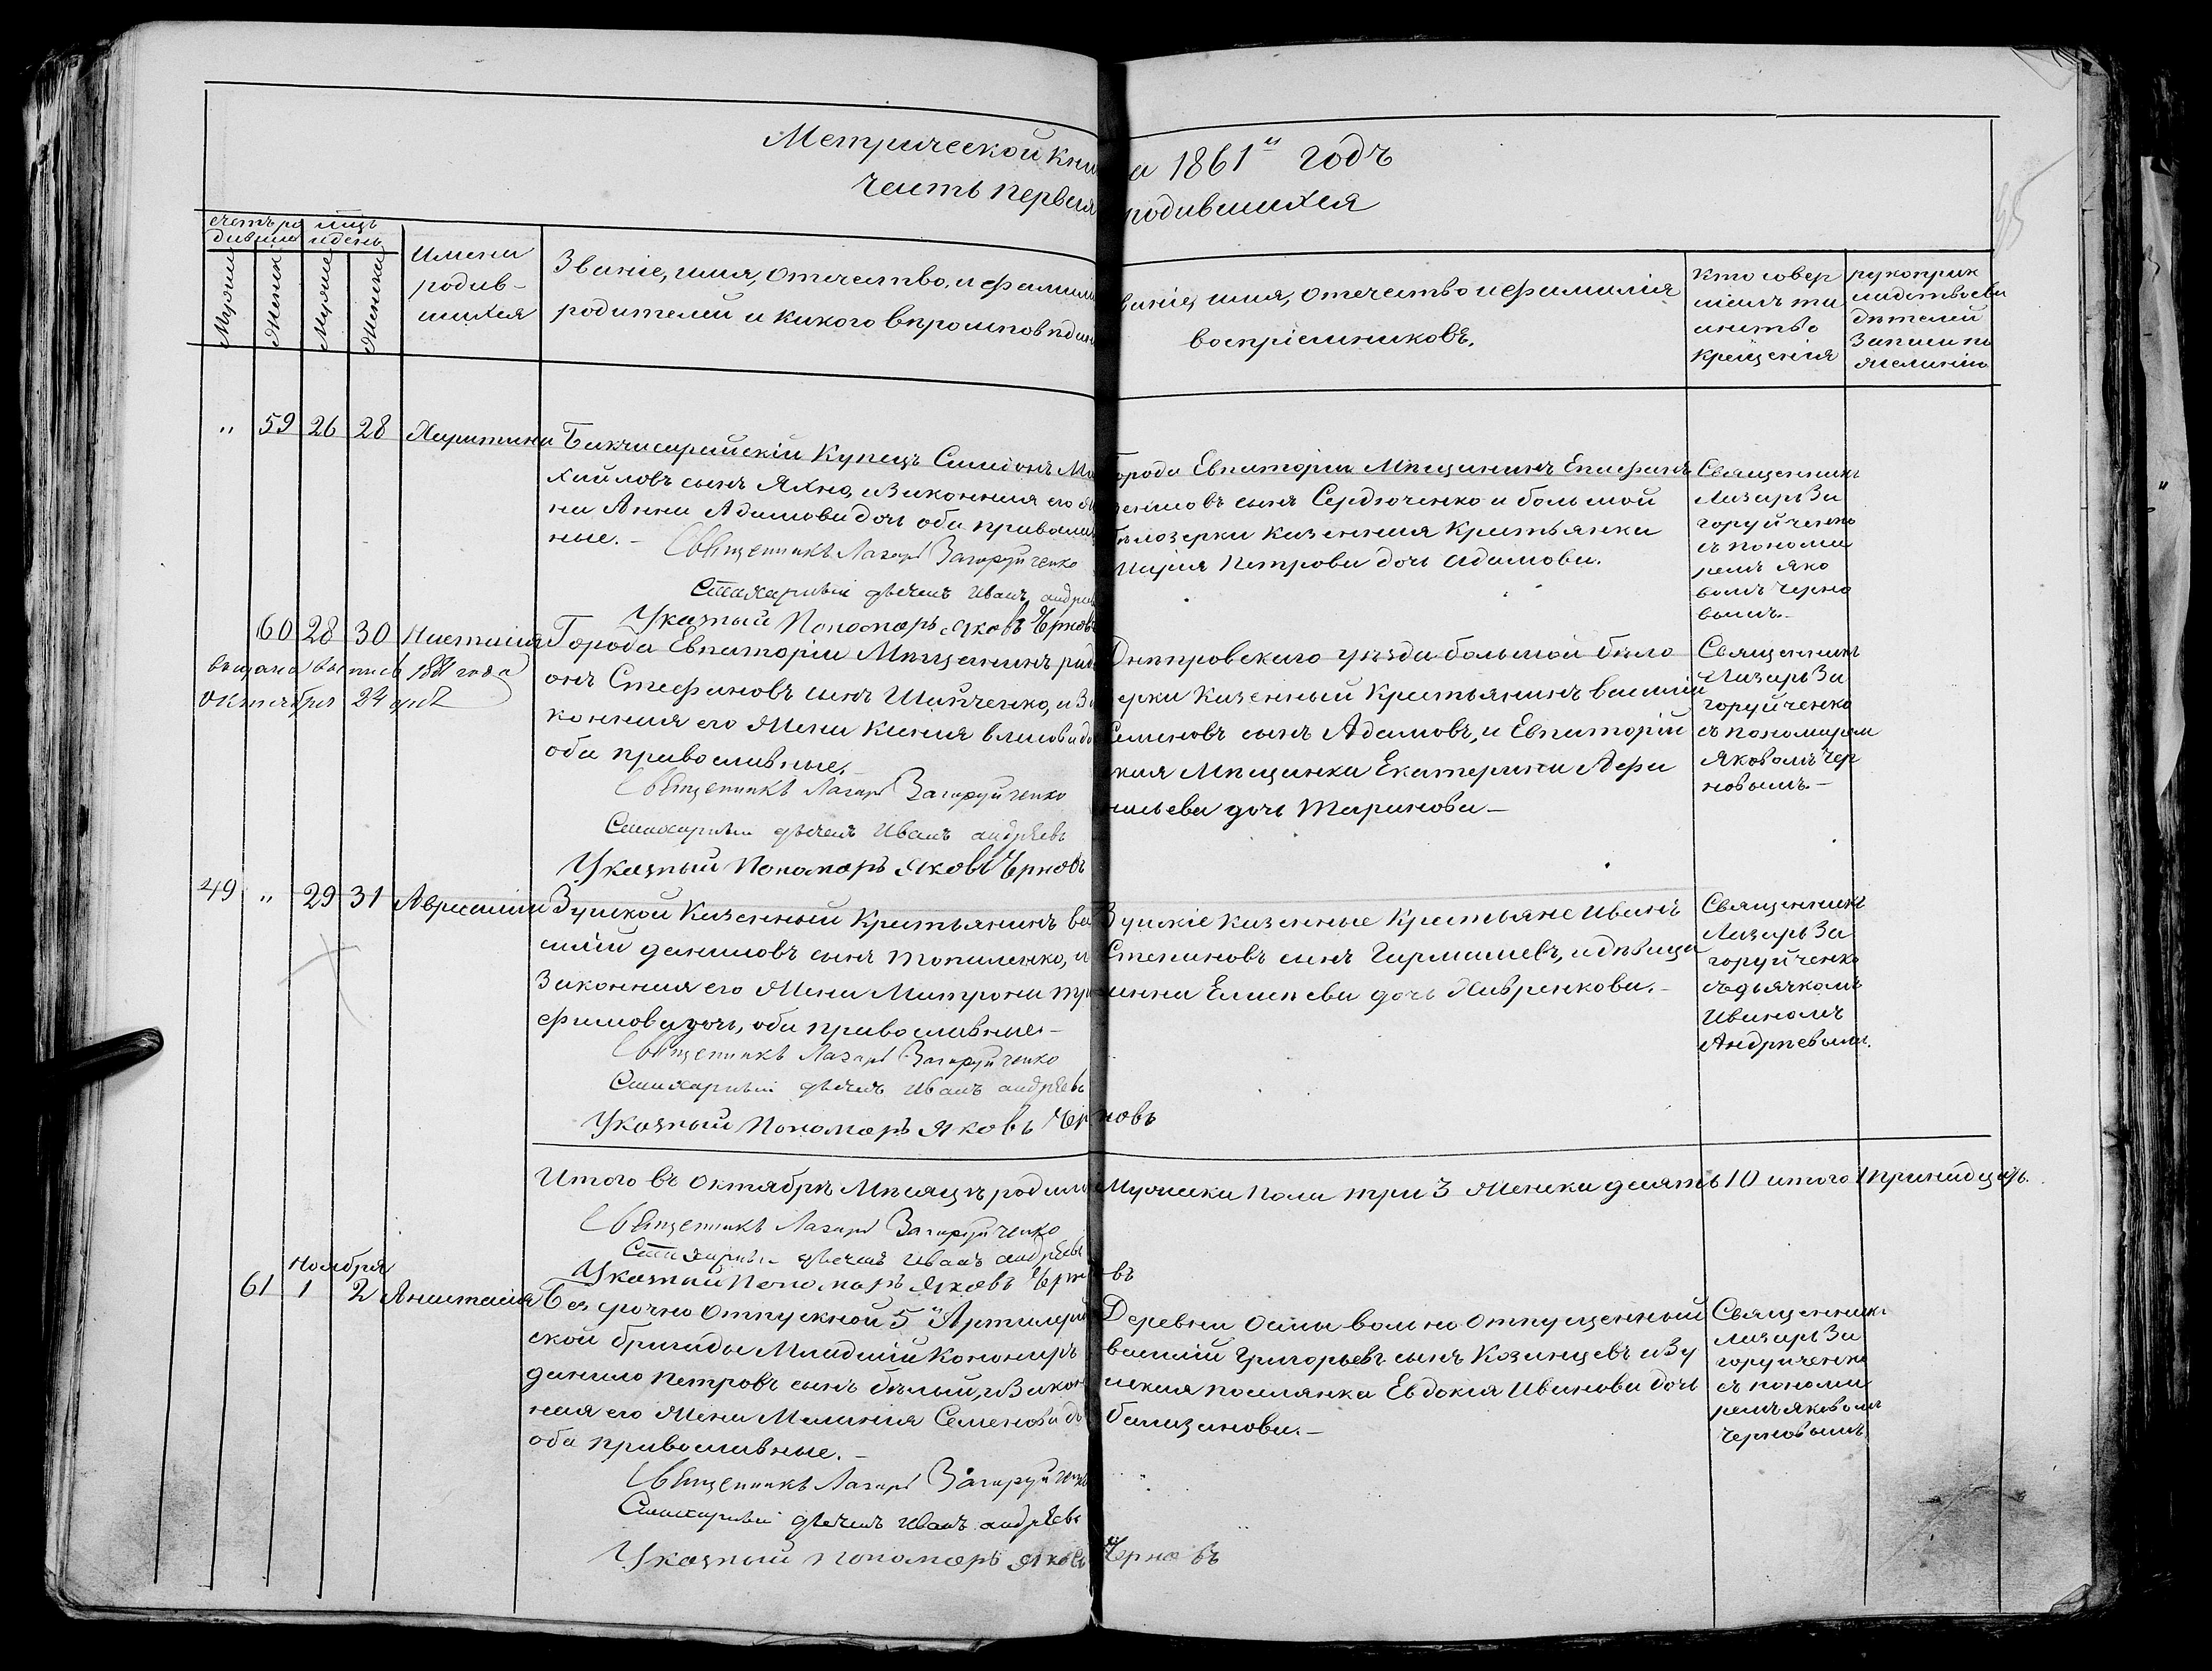 Метрической Кни
а 1861 годъ
часть первая
родившихся
счетъ ро
дивши
мцъ
и день
Мужии
Женск
Муже
Женски
Имена
родив-
шихся
Званіе, имя, отчество, и фамили
родителей и какого вѣроисповѣдан
званіе, имя, отчество и фамилія
воспріемниковъ.
Кто совер
шалъ та
инство
крещенія
рукоприк
ладство сви
дѣтелей
записи по
желанію
" 59 26 28 Харитина
Бакчисарайскій Купецъ Симеонъ Ми
хайловъ сынъ Яхно, и законная его Же
на Анна Адамова дочь оба православ
ные.-
Священникъ Лазарь Загоруйченко
Стихарный дьячекъ Иванъ Андреев
Указный Пономарь Яковъ Чернов
Города Евпаторіи Мѣщанинъ Епифанъ
сынъ Сердюченко и большой
Бѣлозерки казенная Крестьянка
Марія Петрова дочь Адамова.
Священникъ
Лазарь За
горуйченко
съ понома
ремъ Яко
вомъ Черно
вымъ.-
60 28 30 Анастасія
выдана выпись года
Октября 24 дня
Города Евпаторіи Мѣщанинъ Роді
онъ Стефановъ сынъ Шайченко, и За
конная его Жена Ксенія Власова до
оба православные.-
Священникъ Лазарь Загоруйченко
Стихарный дьячекъ Иванъ Андрѣевъ
Указный Пономарь Яковъ Черновъ
Днепровскаго уѣзда большой бѣло
зерки Казенный Крестьянинъ Василій
Семеновъ сынъ Адамовъ, и Евпаторій
ская Мѣщанка Екатерина Афа
насьева дочь Маринова-
Священникъ
Лазарь За
горуйченко
съ пономарем
Яковомъ Чер
новымъ.-
49 " 29 31 Аврамій
Зуйской Казенный Крестьянинъ Ва
силій Даниловъ сынъ Топиленко, и
Законная его Жена Матрона Тро
фимова дочь, оба православные-
Священникъ Лазарь Загоруйченко
Стихарный дьячекъ Иванъ Андрѣевъ
Указный Пономарь Яковъ Черновъ
Зуйскіе казенные Крестьяне Иванъ
Степановъ сынъ Гармашевъ, и дѣвица
Анна Елисѣева дочь Лавренкова.-
Священникъ
Лазарь За
горуйченко
съ дьячкомъ
Иваномъ
Андрѣевымъ.
Итого въ Октябрѣ Мѣсяцѣ родилось Мужеска пола три 3 Женска десять 10 итого тринадцать.
Священникъ Лазарь Загоруйченко
Стихарный дьячекъ Иванъ Андрѣевъ
Указный Пономарь Яковъ Черновъ
Ноября
61 1 2 Анастасія
Безсрочно отпускной 5й Артилерій
ской бригады Младшій Канониръ
Данило Петровъ сынъ бѣлый, и Закон
ная его Жена Меланія Семенова до
оба православные.-
Священникъ Лазарь Загоруйченко
Стихарный дьячекъ Иванъ Андрѣевъ
Указный Пономарь Яковъ Черновъ
Деревни Осмы вольно отпущенный
Василій Григорьевъ сынъ Козинцевъ и Зу
йская поселянка Евдокія Иванова дочь
Балацанова.-
Священникъ
Лазарь За
горуйченко
съ понома
ремъ Яковомъ
Черновымъ